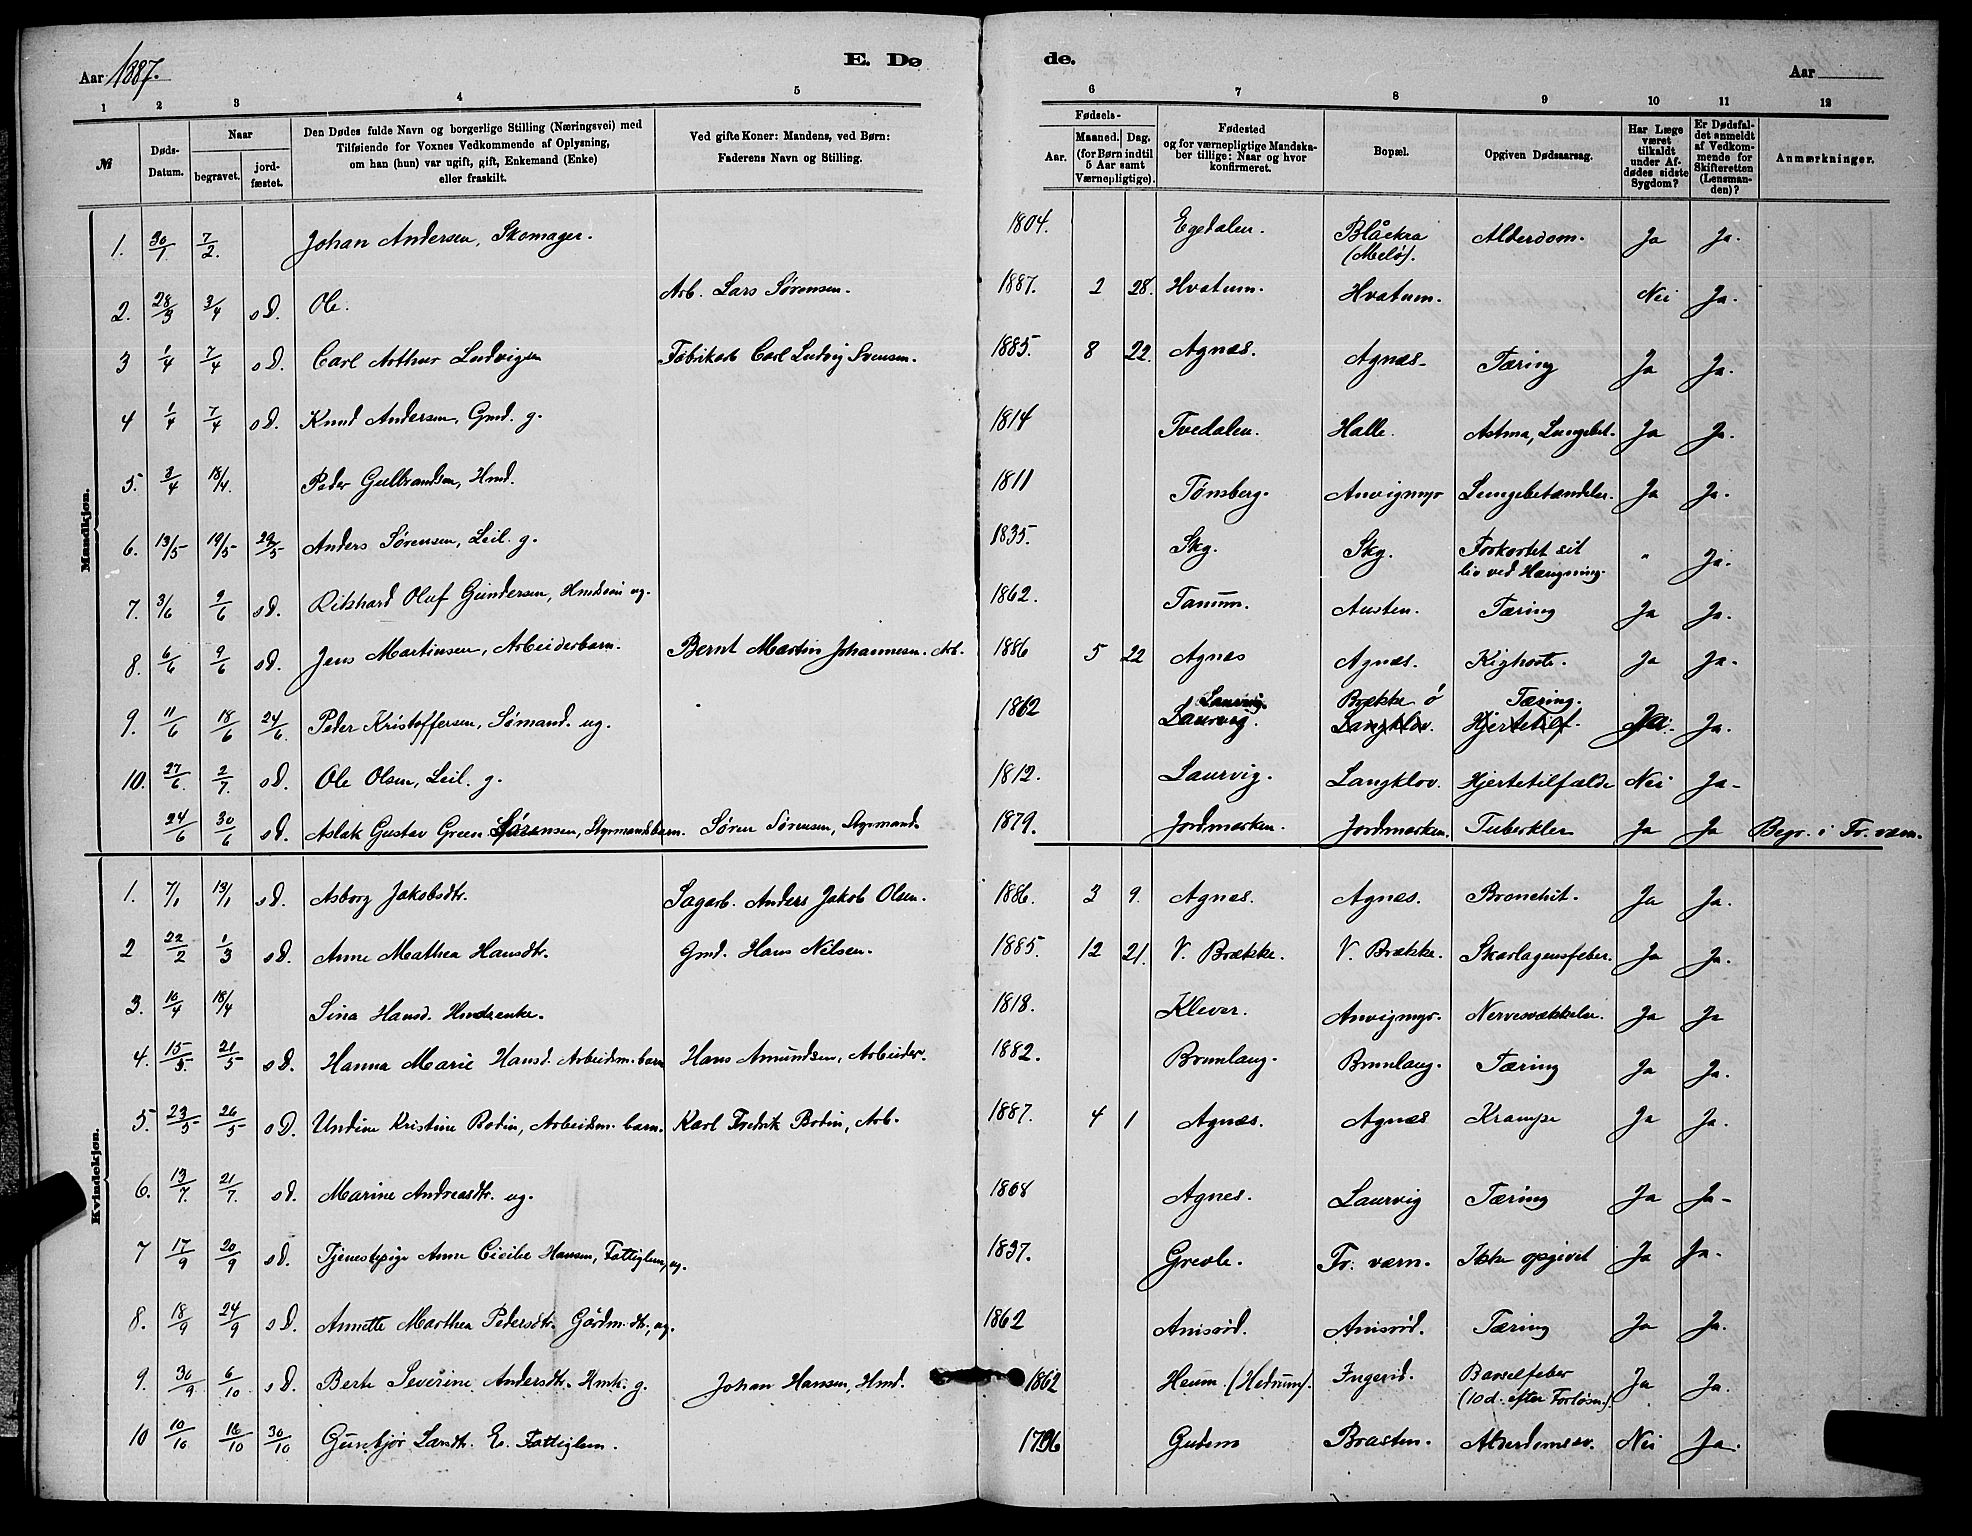 Aar 1887.
E. Dø
de.
Aar
1 2 3 4 5 6 7 8 9 10 11 12
№
Døds-Datum.
Naar
begravet.
jord-fæstet.
Den Dødes fulde Navn og borgerlige Stilling (Næringsvei) med
Tilføiende for Voxnes Vedkommende af Oplysning,
om han (hun) var ugift, gift, Enkemand (Enke)
eller fraskilt.
Ved gifte Koner: Mandens, ved Børn:
Faderens Navn og Stilling.
Fødsels-
Aar.
Maaned. Dag.
(for Børn indtil
5 Aar samt
Værnepligtige).
Fødested
og for værnepligtige Mandska-
ber tillige: Naar og hvor
konfirmeret.
Bopæl.
Opgiven Dødsaarsag.
Har Læge
været
tilkaldt
under Af-
dødes sidste
Sygdom?
Er Dødsfal-
det anmeldt
af Vedkom-
mende for
Skifteretten
(Lensman-
den)?
Anmærkninger.
Mandkjøn.
1. 30/1 7/2 Johan Andersen, Skomager. 1804. Egedalen. Blåekra (Melø). Alderdom. Ja Ja.
2. 28/3 3/4 s.D. Ole. Arb. Lars Sørensen. 1887. 2 28. Hvatum. Hvatum. Nei Ja.
3 1/4 7/4 s.D. Carl Arthur Ludvigsen Fabrikarb Carl Ludvig Svensen. 1885. 8 22. Agnæs. Agnæs. Tæring Ja Ja.
4 1/4 7/4 s.D. Knud Andersen, Gmd. g. 1814 Tvedalen. Halle. Astma, Lungebet. Ja Ja.
5. 3/4 18/4. Peder Gulbrandsen, Hmd. 1811 Tønsberg. Anvigmyr Lungebetændelse. Ja Ja.
6. 13/5 19/5 29/5 Anders Sørensen, Leil. g. 1835. Skg. Skg. Forkortet sit liv ved Hængning. " Ja.
7. 3/6 9/6 s.D. Rikhard Oluf Gundersen, Hmdsøn ug. 1862. Tanum. Austen. Tæring Ja Ja.
8. 6/6 9/6 s.D. Jens Martinsen, Arbeiderbarn. Bernt Martin Johannesen. Arb. 1886 5 22 Agnes Agnæs. Kighoste. Ja Ja.
9. 11/6 18/6 24/6. Peder Kristoffersen, Sømand. ug. 1862 Laurvig. Laurvig. Brække ø Langklov. Tæring. Hjertetilf. Ja.
10. 27/6. 2/7. s.D. Ole Olsen, Leil. g. 1812. Laurvig. Langklov. Hjertetilfælde Nei Ja
24/6 30/6 s.D. Aslak Gustav Green Sørensen, Styrmandsbarn. Søren Sørensen, Styrmand. 1879. Jordmarken. Jordmarken. Tuberkler Ja Ja Begr. i Fr. værn.
Kvindekjøn.
1. 7/1 13/1 s.D. Asborg Jakobsdtr. Sagarb. Anders Jakob Olsen. 1886. 3 9. Agnes. Agnæs. Bronchit. Ja Ja.
2 22/2 1/3 s.D. Anne Mathea Hansdtr. Gmd. Hans Nilsen. 1885. 12 21. V. Brække. V. Brække. Skarlagensfeber. Ja Ja.
3. 10/4 18/4 Sina Hansd. Hmdsenke. 1818. Klever. Anvigmyr. Nervesvækkelse. Ja Ja
4. 15/5. 21/5 s.D. Hanna Marie Hansd. Arbeidsm. barn Hans Amundsen, Arbeider. 1882. Brunlang. Brunlang. Tæring Ja Ja.
5. 23/5 26/5 s.D. Undine Kristine Bodin, Arbeidsm. barn. Karl Fredrik Bodin, Arb. 1887. 4 1 Agnæs. Agnæs Krampe Ja Ja.
6. 13/7. 21/7. s.d. Marine Andreasdtr. ug. 1868 Agnes. Laurvig Tæring Ja Ja
7 17/9 20/9 s.D. Tjenestepige Anne Cicilie Hansen, Fattiglem, ug. 1837. Grevle. Fr. værn. Ikke opgivet Ja Ja.
8. 18/9 24/9 s.D. Annette Marthea Pedersdtr. Gårdm. dtr, ug. 1862 Anisrød. Anisrød. Tæring Ja Ja.
9. 30/9. 6/10 s.D. Berte Severine Andersdtr. Hmk. g. Johan Hansen, Hmd. 1862 Heum. (Hedrum). Ingerid. Barselfeber (10 d. efter Forløsn.) Ja Ja.
10 10/10 16/10 30/10 Gunbjør Larsdtr. E. Fattiglem. 1796 Gudem Brasten. Alderdomssv. Nei Ja.